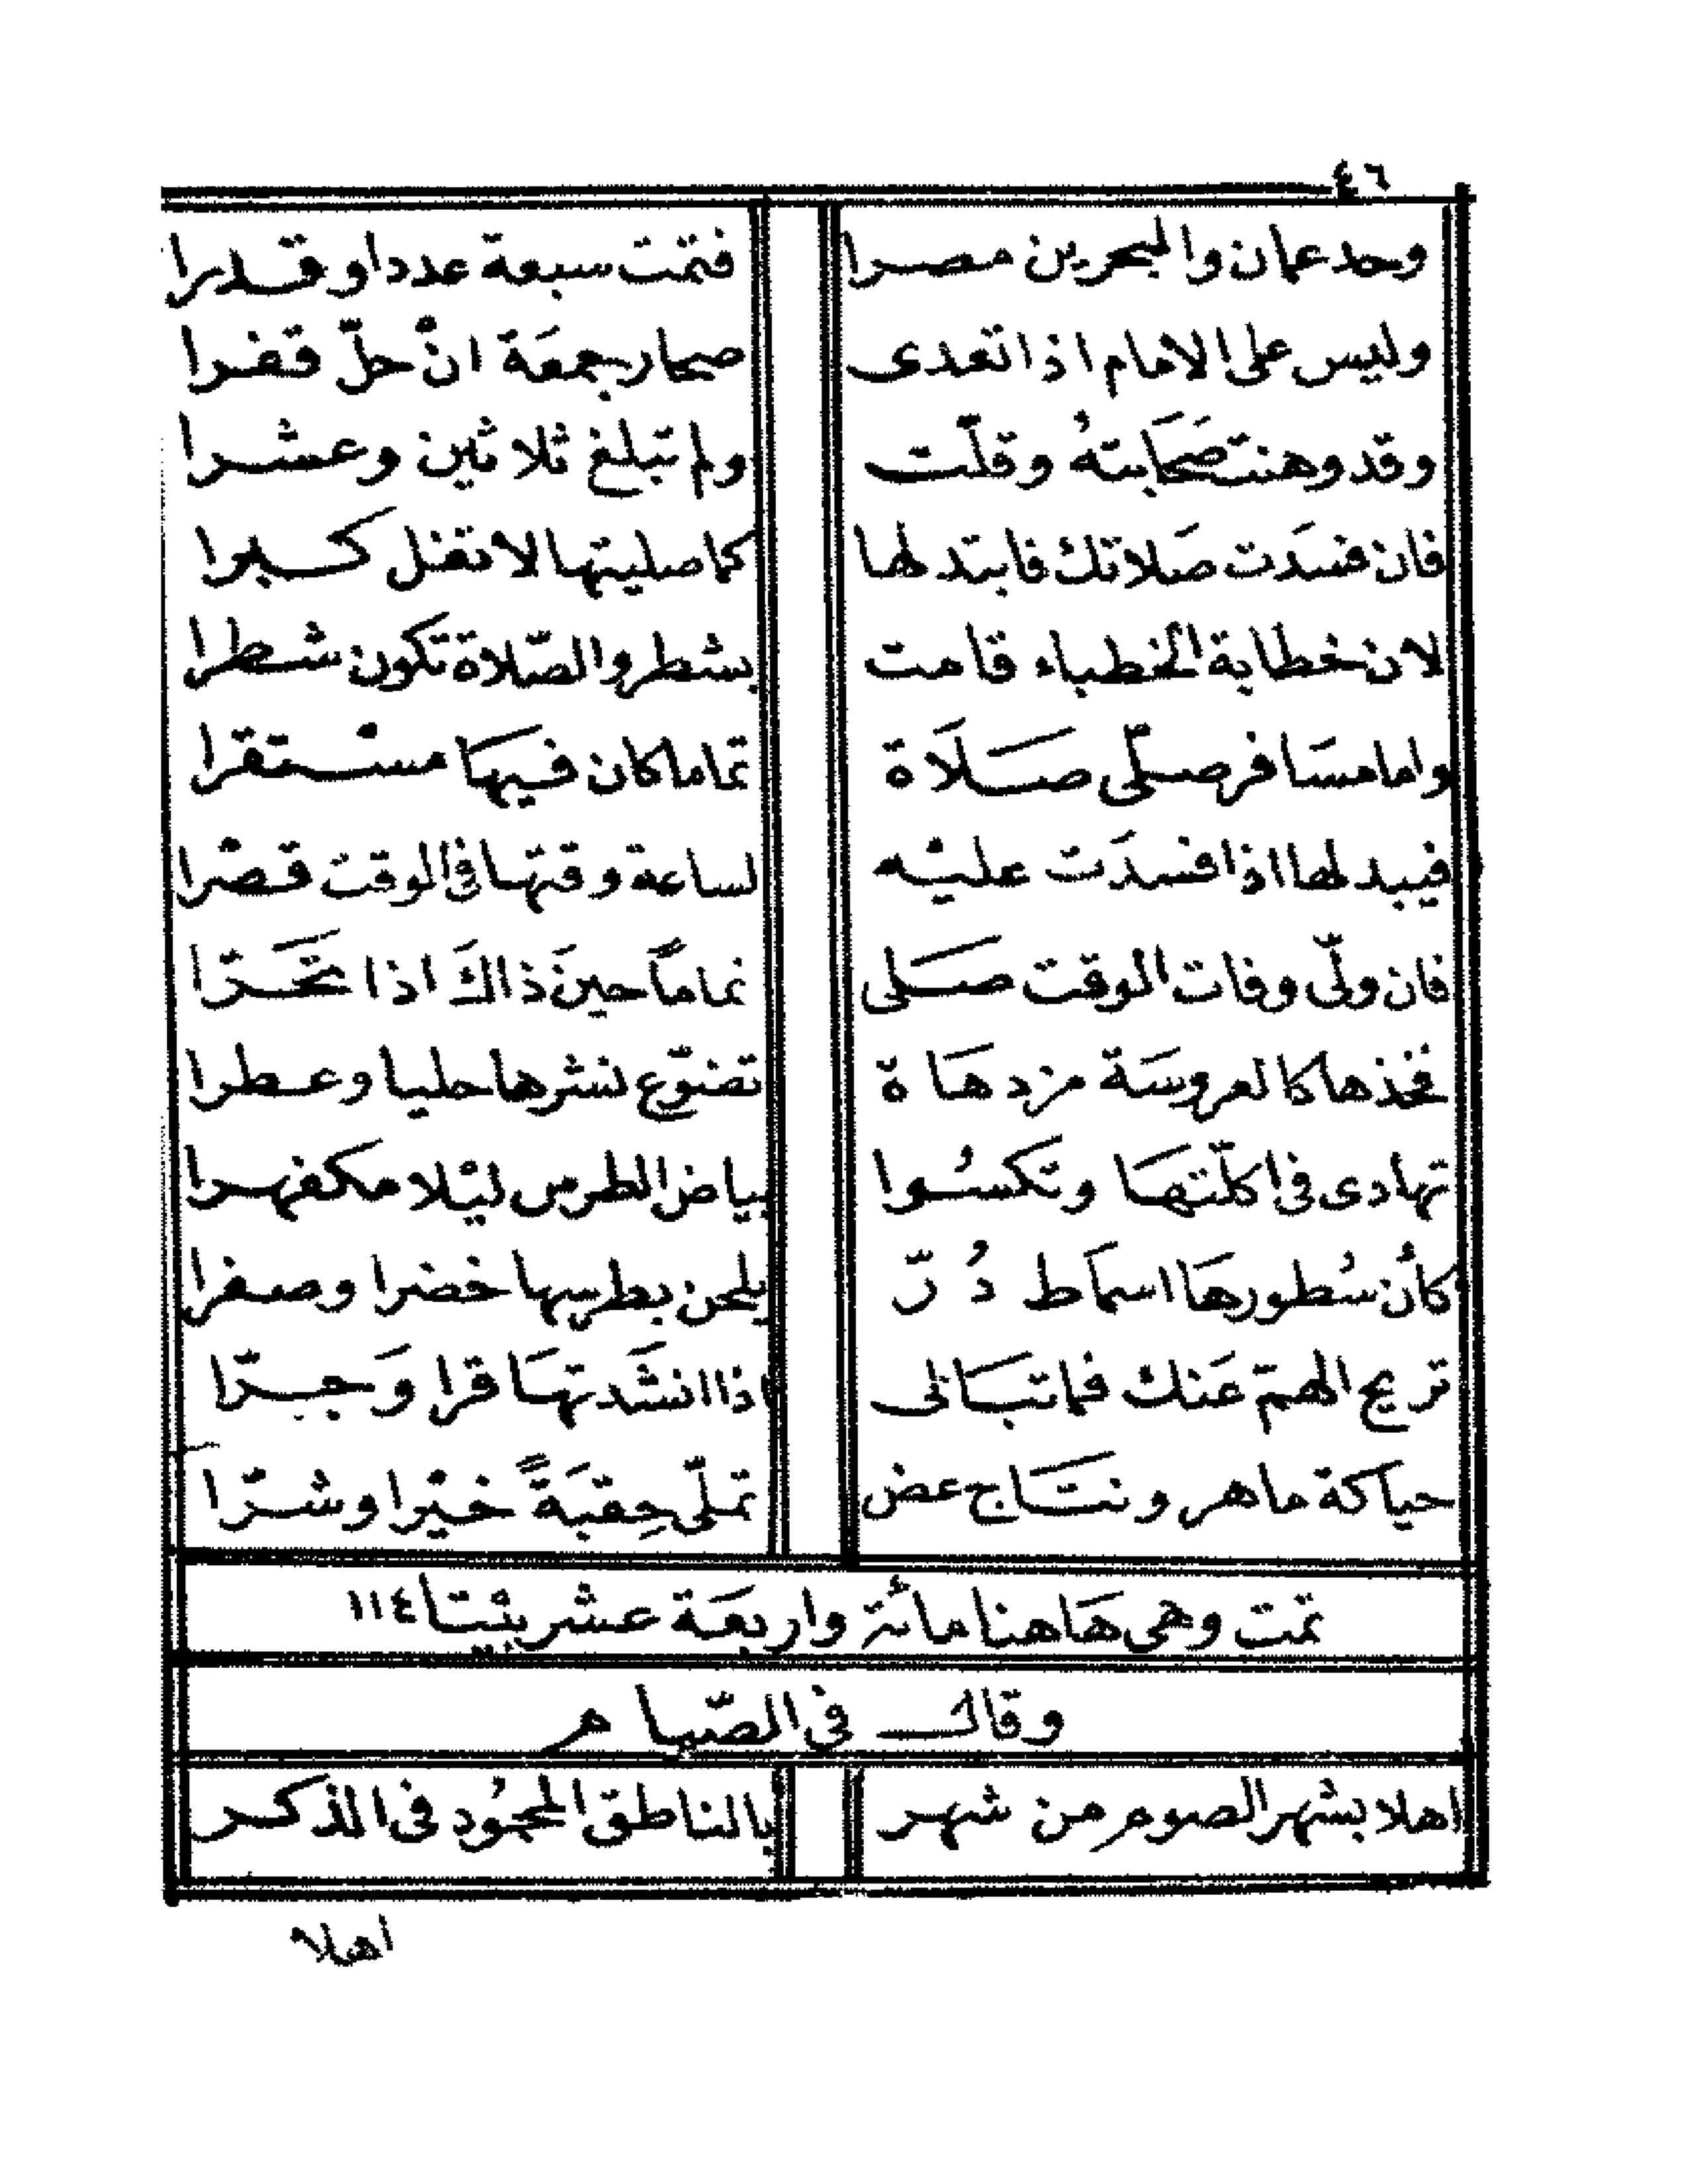 ٤٦
وحد عمان والبحرين مصرا فتمت سبعة عددا وقدرا
وليس على الامام اذا تعدى صحار جمعة ان حلّ قفرا
وقد وهنت صحابته وقلّت ولم تبلغ ثلاثين وعشرا
فان فسدت صلاتك فابتدلها كما صليتها لا تقل كبرا
لان خطابة الخطباء قامت بشطر والصّلاة تكون شطرا
واما مسافر صلّى صلاة تماما كان فيها مستقرا
فيبدلها اذا فسدت عليه لساعة وقتها في الوقت قصرا
فان ولّى وفات الوقت صلى تماماً حين ذاك اذا تحرّا
فخذها كالعروسة مزدهاة تضوّع نشرها حليا وعطرا
تهادى في اكلّتها وتكسوا بياض الطرس ليلا مكفهرا
كأن سطورها اسماط دُرّ يلحن بطرسها خضرا وصفرا
تريح الهمّ عنك فما تبالى اذا انشدتها قرا وجرّا
حياكة ماهر ونتاج عض تملّى حِقبَةً خيْرا وشرّا
تمت وهي هاهنا مائة واربعة عشر بيتا ١١٤
وقال في الصّيام
اهلا بشهر الصوم من شهر بالناطق المحمُود في الذكر
اهلا